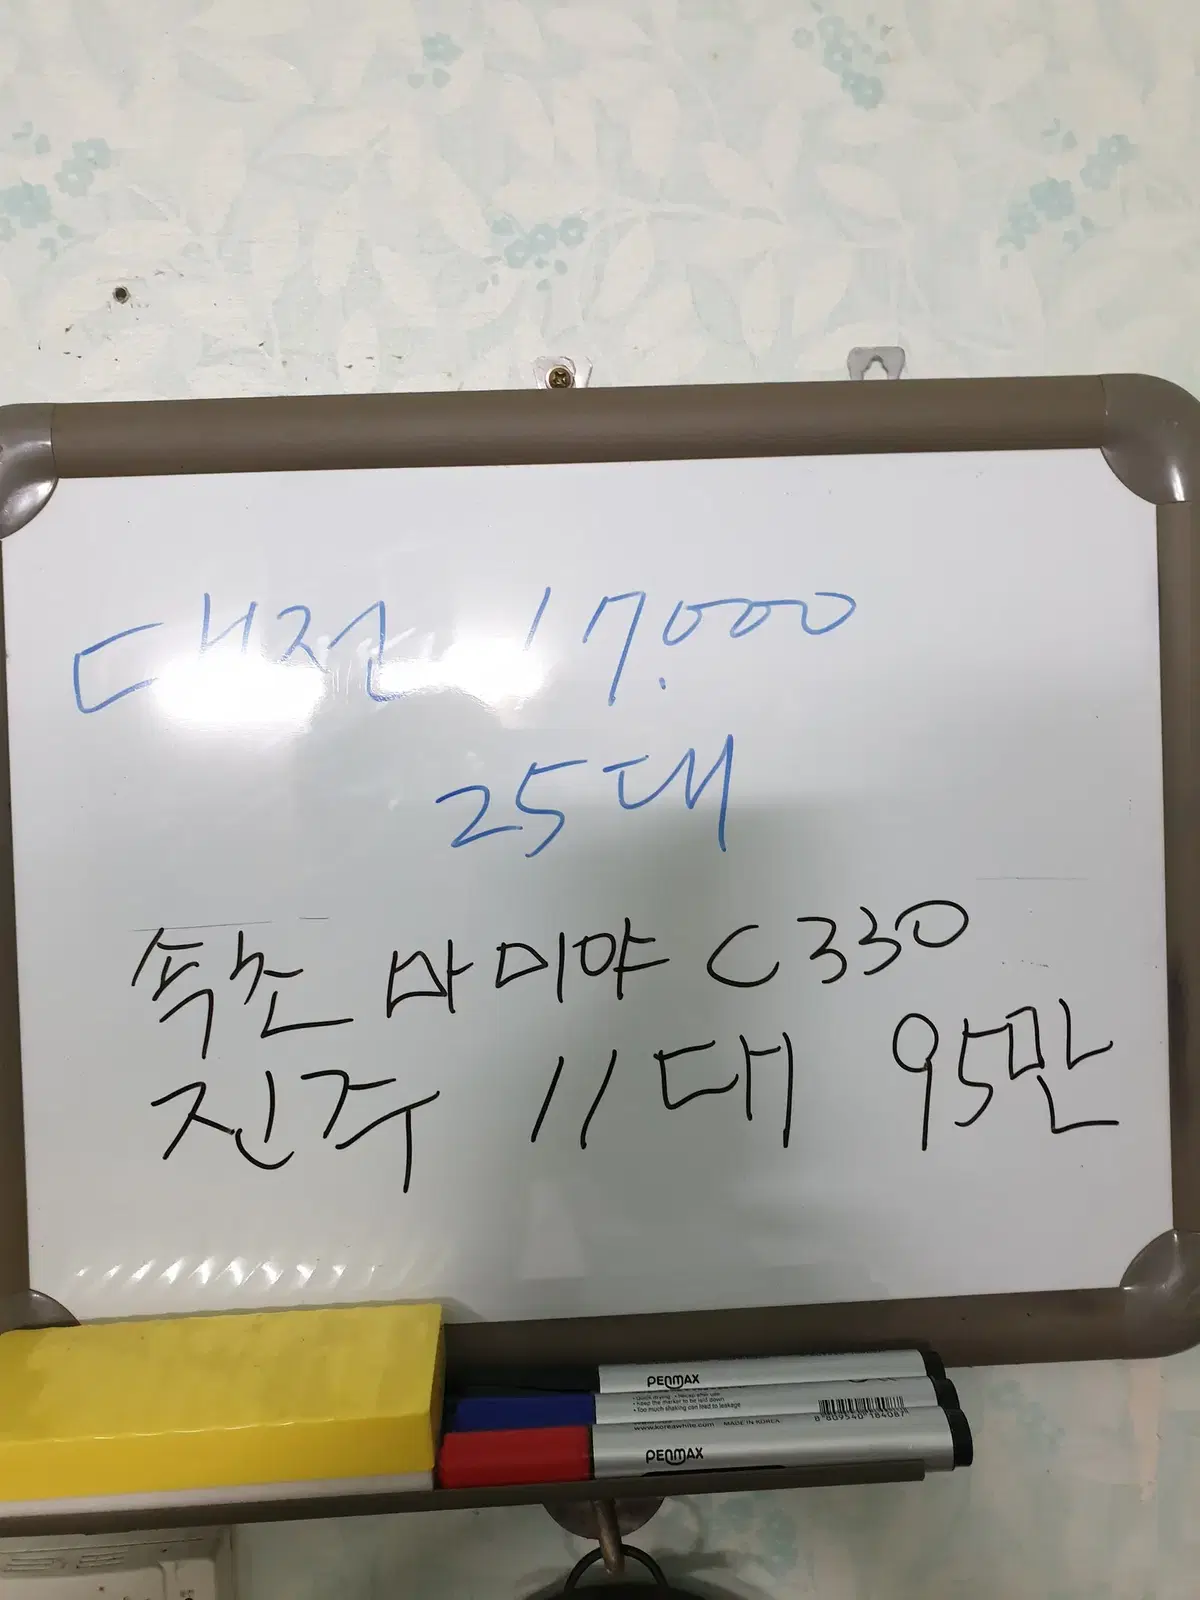 대전 17.000
25대
속초 마미야 C330
진주 11대 95만
PENMAX
• Keep the marker to be laid down
• Too much shaking can lead to leakage
8 809540 184087
www.koreawhite.com MADE IN KOREA
PENMAX